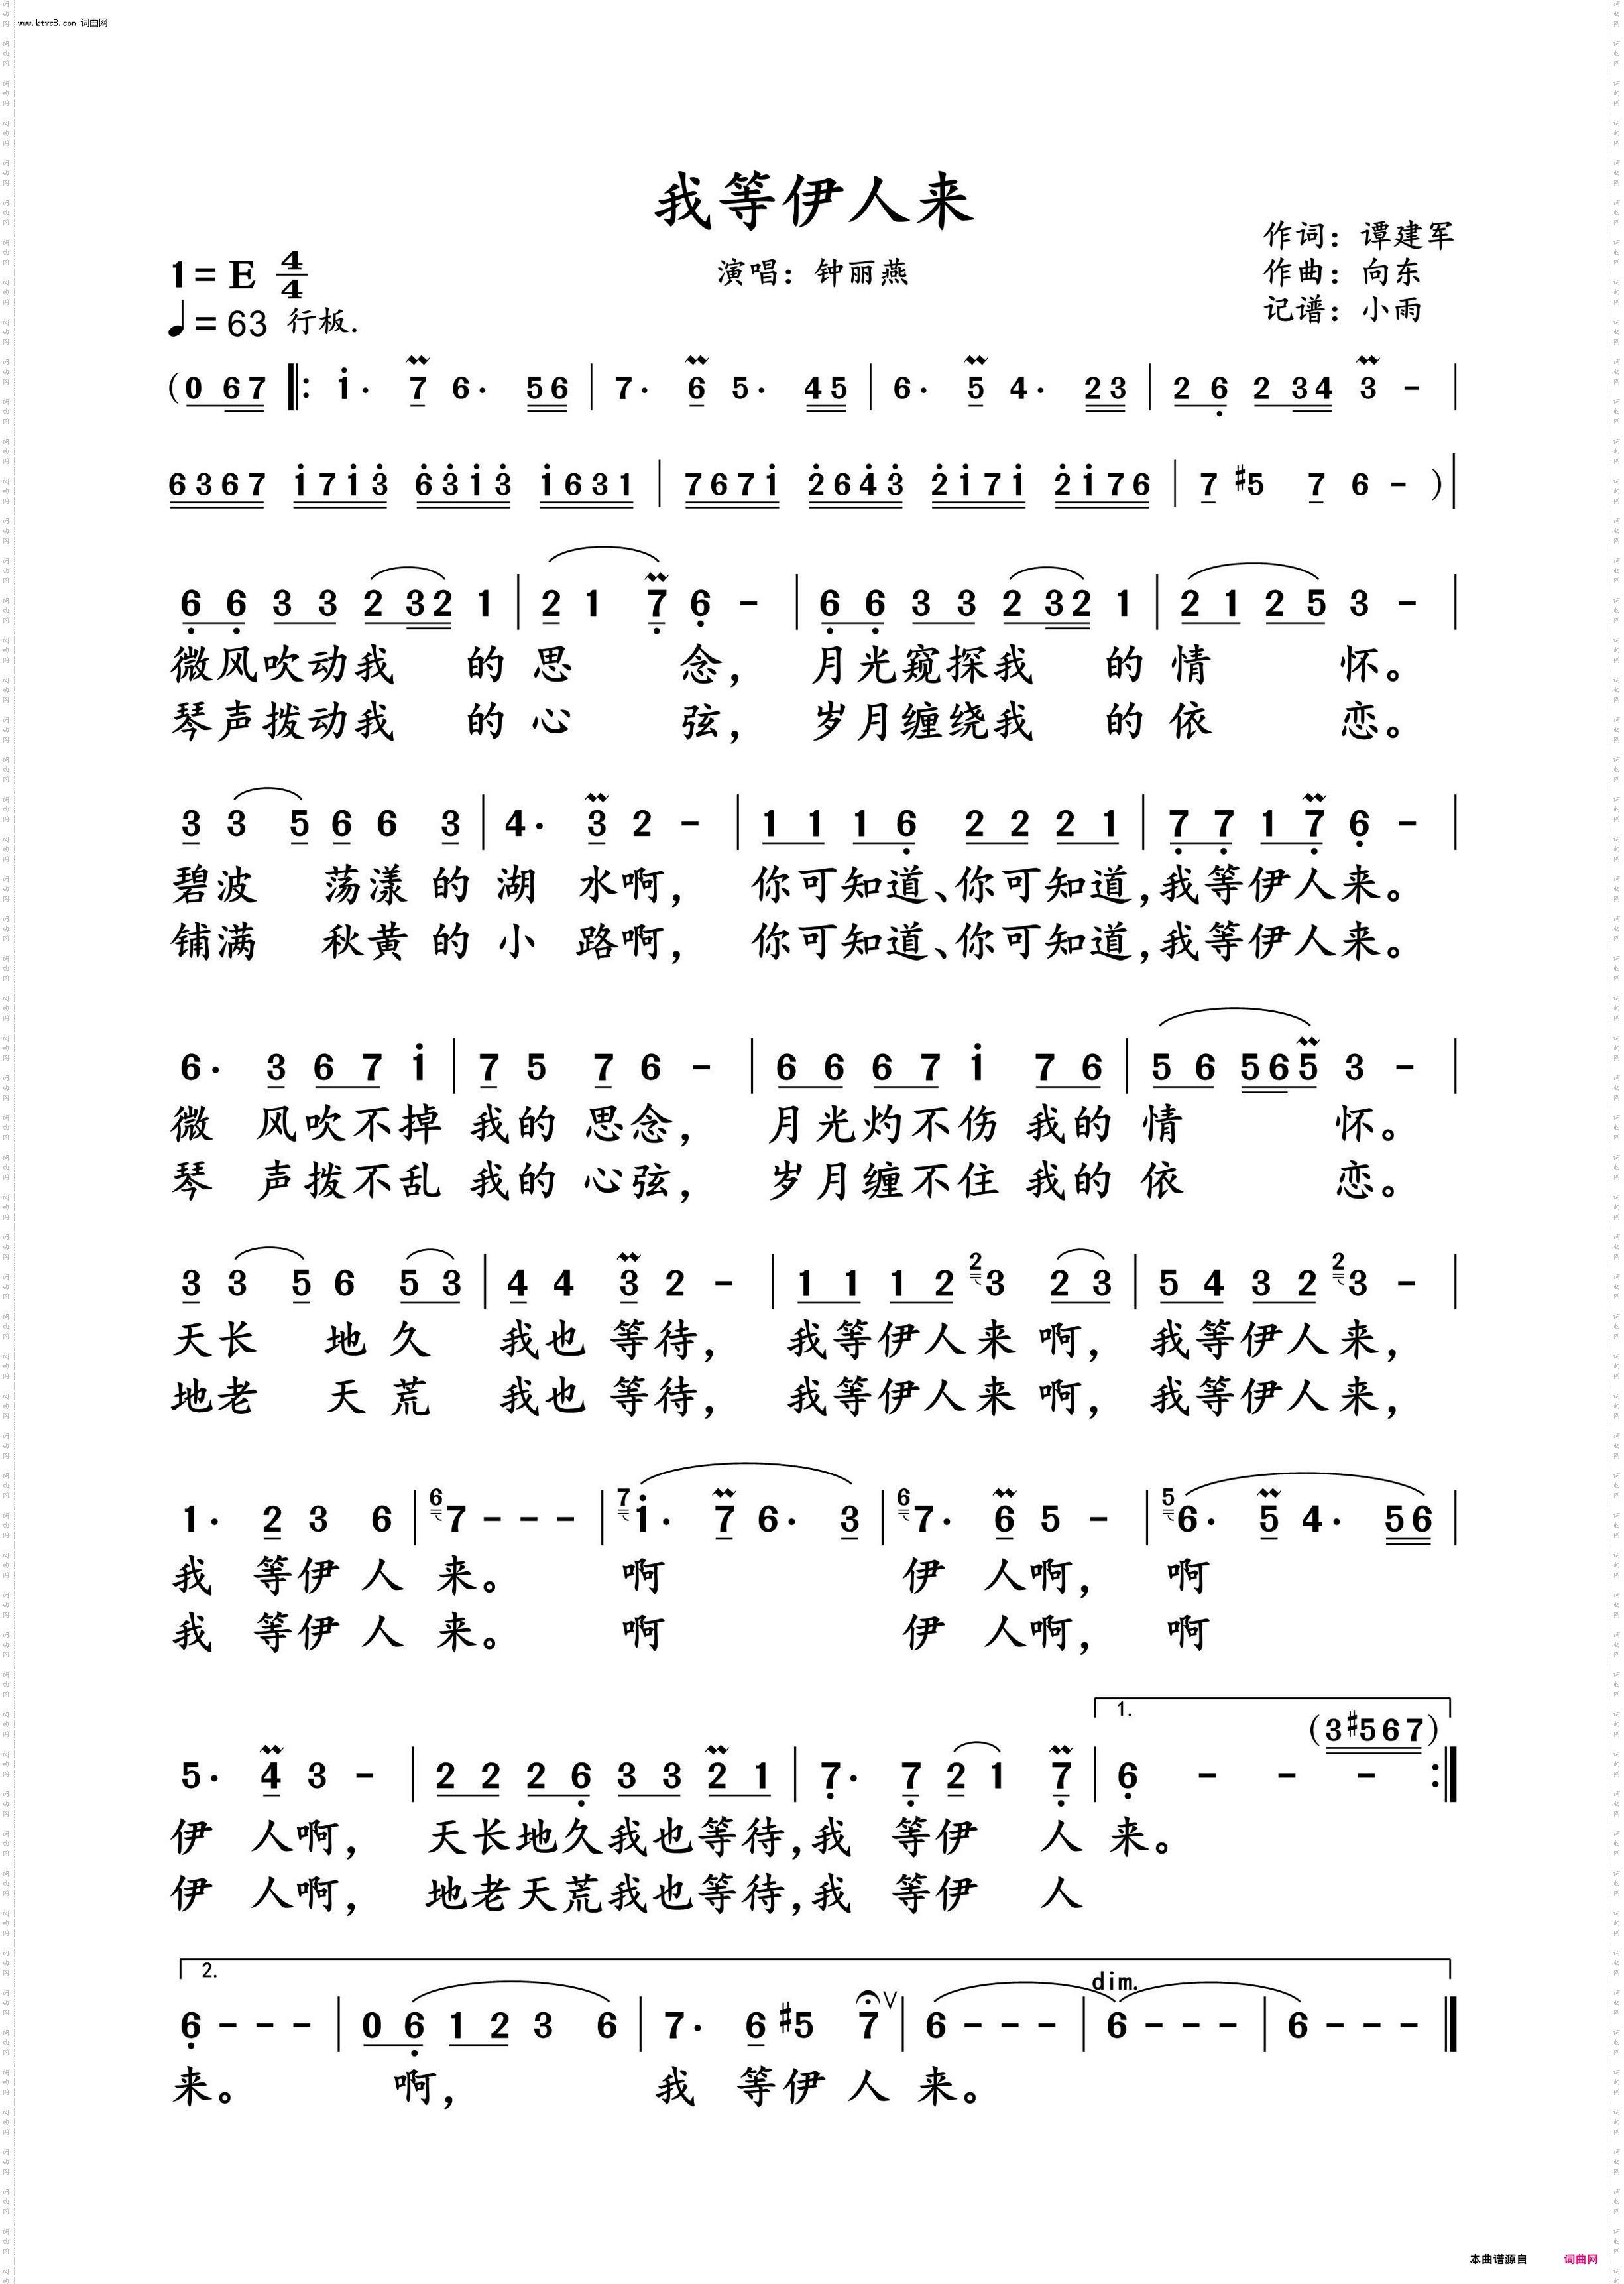 www.ktvc8.com 词曲网
我等伊人来
作词：谭建军
1=E 4/4 演唱：钟丽燕 作曲：向东
♩=63 行板. 记谱：小雨
(0 67 ‖: i· 7 6· 56 | 7· 6 5· 45 | 6· 5 4· 23 | 2 6 2 34 3 - |
6367 i7i3 63i3 i631 | 767i 2643 2i7i 2i76 | 7 #5 7 6 - )|
6 6 3 3 2 32 1 | 2 1 7 6 - | 6 6 3 3 2 32 1 | 2 1 2 5 3 - |
微风吹动我 的思 念， 月光窥探我 的情 怀。
琴声拨动我 的心 弦， 岁月缠绕我 的依 恋。
3 3 5 6 6 3 | 4· 3 2 - | 1 1 1 6 2 2 2 1 | 7 7 1 7 6 - |
碧波 荡漾的湖 水啊， 你可知道、你可知道，我等伊人来。
铺满 秋黄的小 路啊， 你可知道、你可知道，我等伊人来。
6· 3 6 7 i | 7 5 7 6 - | 6 6 6 7 i 7 6 | 5 6 565 3 - |
微 风吹不掉 我的思念， 月光灼不伤 我的情 怀。
琴 声拨不乱 我的心弦， 岁月缠不住 我的依 恋。
3 3 5 6 5 3 | 4 4 3 2 - | 1 1 1 2 2 3 2 3 | 5 4 3 2 2 3 - |
天长 地久 我也等待， 我等伊人来啊， 我等伊人来，
地老 天荒 我也等待， 我等伊人来啊， 我等伊人来，
1· 2 3 6 | 6 7 - - - | 7 i· 7 6· 3 | 6 7· 6 5 - | 5 6· 5 4· 56 |
我 等伊人 来。 啊 伊 人啊， 啊
我 等伊人 来。 啊 伊 人啊， 啊
1.
(3#567)
5· 4 3 - | 2 2 2 6 3 3 2 1 | 7· 7 2 1 7 | 6 - - - :‖
伊 人啊， 天长地久我也等待，我 等伊 人 来。
伊 人啊， 地老天荒我也等待，我 等伊 人
2.
dim.
6 - - - | 0 6 1 2 3 6 | 7· 6 #5 7 V | 6 - - - | 6 - - - | 6 - - - ‖
来。 啊， 我 等伊人 来。
本曲谱源自 词曲网